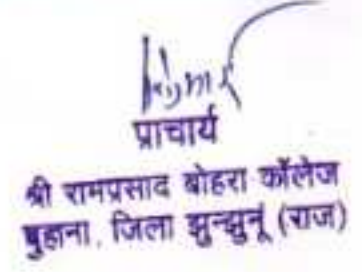 प्राचार्य
श्री रामप्रसाद बोहरा कॉलेज
बुहाना, जिला झुन्झुनूं (राज)